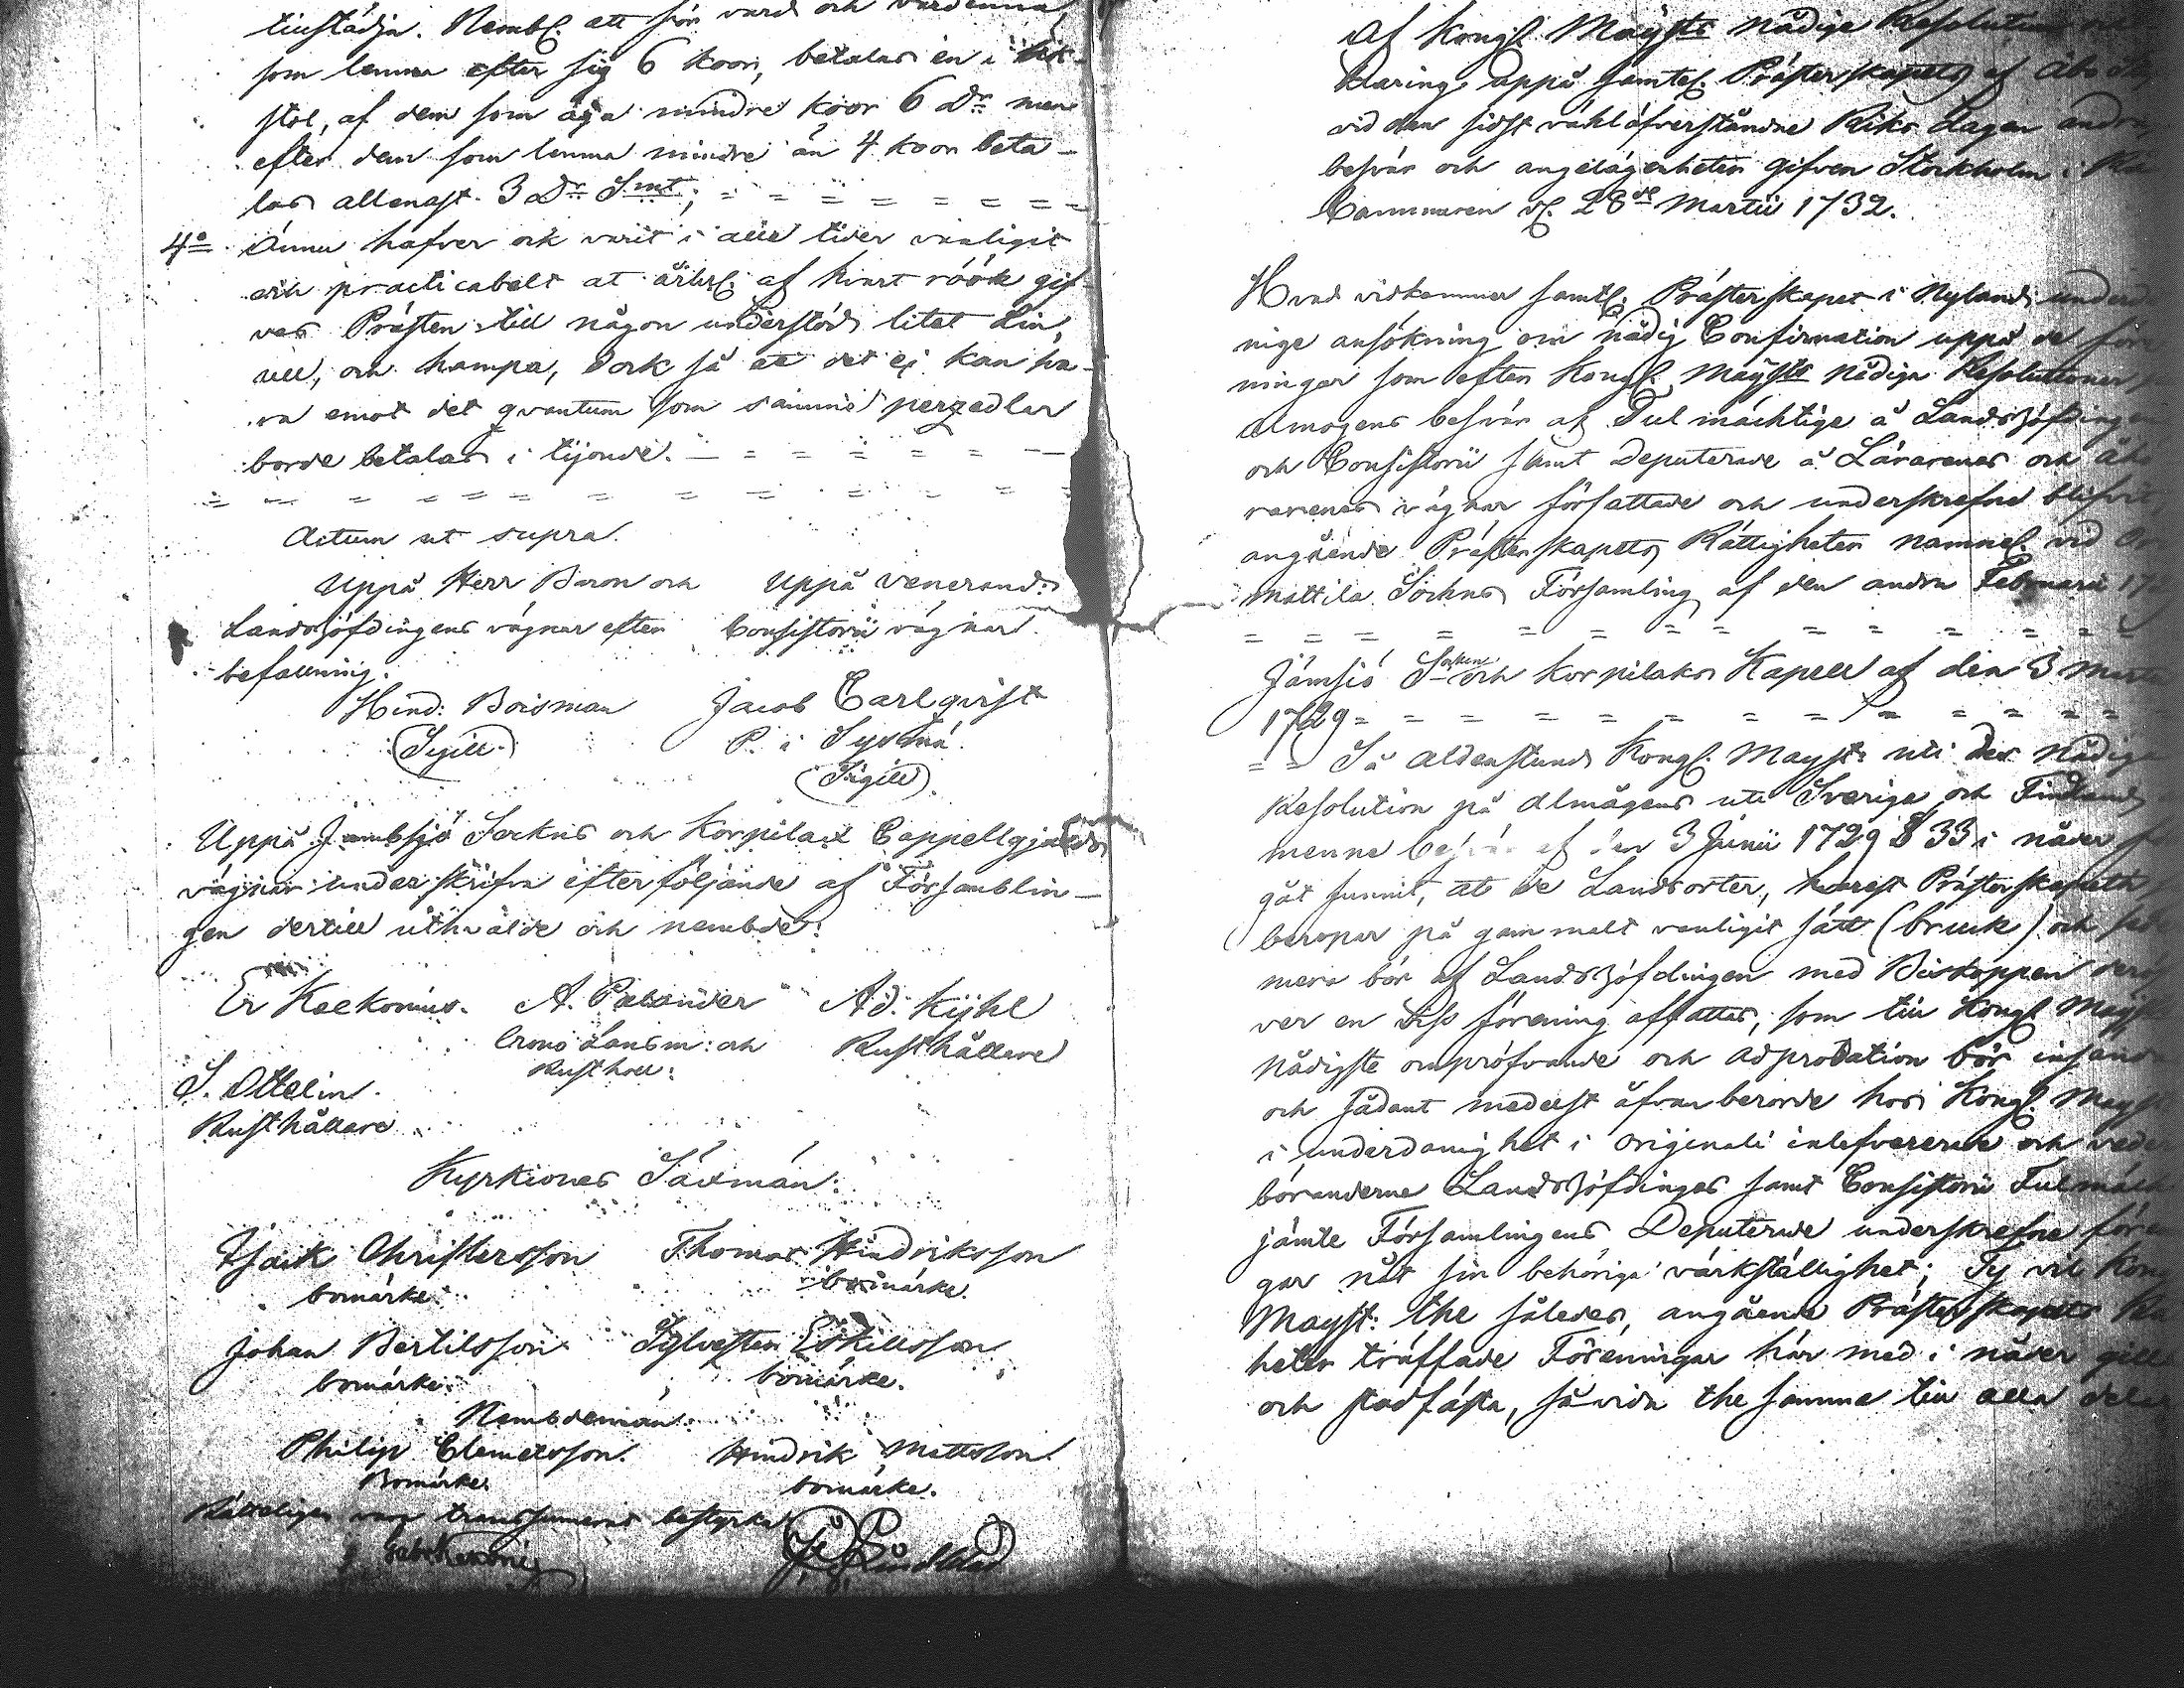 tiustädja. Nembl. att för vard och vardenna,
som lemna efter sig 6 koor, betalas en i lik-
stol, af dem som äga mindre koor 6 Dr men
efter dem som lemna mindre än 4 koor beta-
las allenast 3 Dr Smt; = = = = = = = =
4o Ännu hafver ock varit i alla tider vanligit
och practicabelt at årligl. af hvart röök gif-
ves Prästen till någon understöd litet Lin,
ull, och hampa, dock så at det ej kan sva-
ra emot det qvantum som samme perzedlar
borde betalas i tijonde. = = = = = = =
= = = = = = = = = = = =
Actum ut supra.
Uppå Herr Baron och
Landshöfdingens vägnar efter
befallning.
Hind: Boisman
(Sigill.)
Uppå venerand:
Consistorii vägnar.
Jacob Carlqvist
P. i Sysmä.
(Sigill)
Uppå Jembsjö Sockns och Korpilax Cappellgjälds
vägnar underskrifva efterföljande af Församblin-
gen dertill uthvalde och nembde:
Er Kaekonius. A. Palander Ad. Kijhl
Crono Länsm: och Rusthållare
Rusthåll:
S. Ottelin.
Rusthållare
Kyrkiones Säxmän:
Isaik Christersson Thomas Hindriksson
bomärke. bomärke.
Johan Bertilsson Sylvester Eskillsson
bomärke. bomärke.
Nembdemän:
Philip Clemetsson. Hindrik Mattsson
Bomärke. bomärke.
Rätteligen vara transsumerat bestyrka
Af Kongl. Maysts nådige Resolution
klaring uppå samtel. Prästerskapets af Åbo
vid den sidst väl öfverståndne Riks Dagen andra
besvär och angelägenheter gifven Stockholm i
Cammaren d. 28de Martii 1732.
Hvad vidkommer samtl. Prästerskapet i Nyland underdå
nige ansökning om nådig Confirmation uppå de före
ningar som efter Kongl. Maysts nådiga Resolutioner
Almogens besvär af Fulmächtige å Landshöfdingen
och Consistorii samt Deputerade å Lärarenes och åhö
rarenes vägnar författade och underskrefne blifvit,
angående Prästerskapets Rättigheter namnel. vid
mattila Sochns Församling af den andra Februarii 17
= = = = = = = = = = = = =
Jämsiö Socken och Korpilaks Kapell af den 3 Martii
1729 = = = = = = = = = =
= = Så aldenstund Kongl. Mayst: uti des Nådiga
Resolution på Almågens uti Sverige och Finland
menne besvär af den 3 Junii 1729 § 33 i nåder
gåt funnit, at de Landsorter, hvarest Prästerskapeth
beropar på gammalt vanligit sätt (bruk) och
mera bör af Landshöfdingen med Biskoppen deröf
ver en viss förening affattas, som till Kongl Mayst
nådigste ompröfvande och adprobation bör insändas
och sådant medelst åfvanberörde hos Kongl. Mayst
i underdånighet i originali inlefvererade och veder
börandernes Landshöfdinges samt Consistorii Fulmäch
jämte Församlingens Deputerade underskrefne fören
gar nåt sin behöriga värkställighet; Ty vil Kong
Mayst: the således, angående Prästerskapets
heter träffade Föreningar här med i nåder gilla
och stadfästa, så vida the samma till alla delar